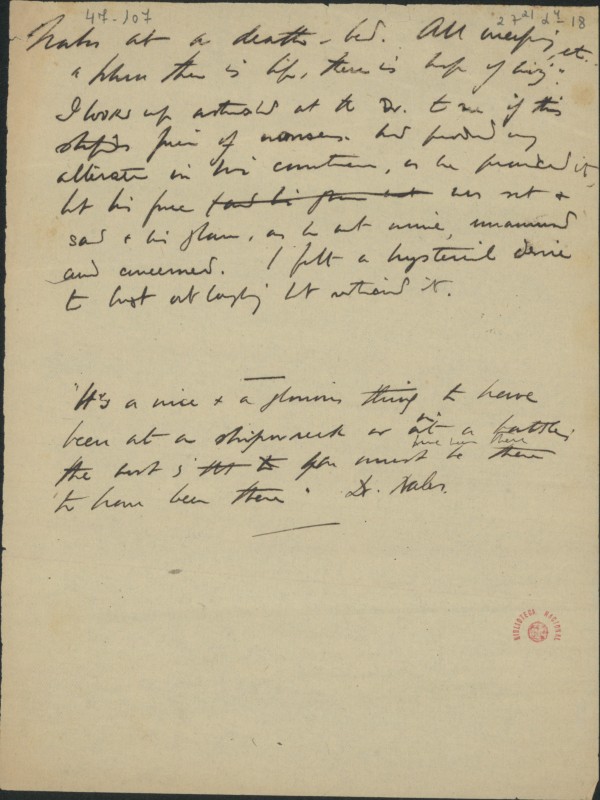 47-107
27 21 24 18
Nabos at a death-bed. All weeping, etc.
"Where there is life, there is hope of living."
I looked up astonished at the Dr. to see if this
stupid piece of nonsense had produced any
alteration in his countenance, as he pronounced it,
but his face was set &
sad & his glance, as he met mine, unamused
and concerned. I felt a hysterical desire
to burst out laughing but restrained it.
"It's a nice & a glorious thing to have
been at a shipwreck or in a battle;
the worst is you must have been there
to have been there". Dr. Nabos.
BIBLIOTECA NACIONAL